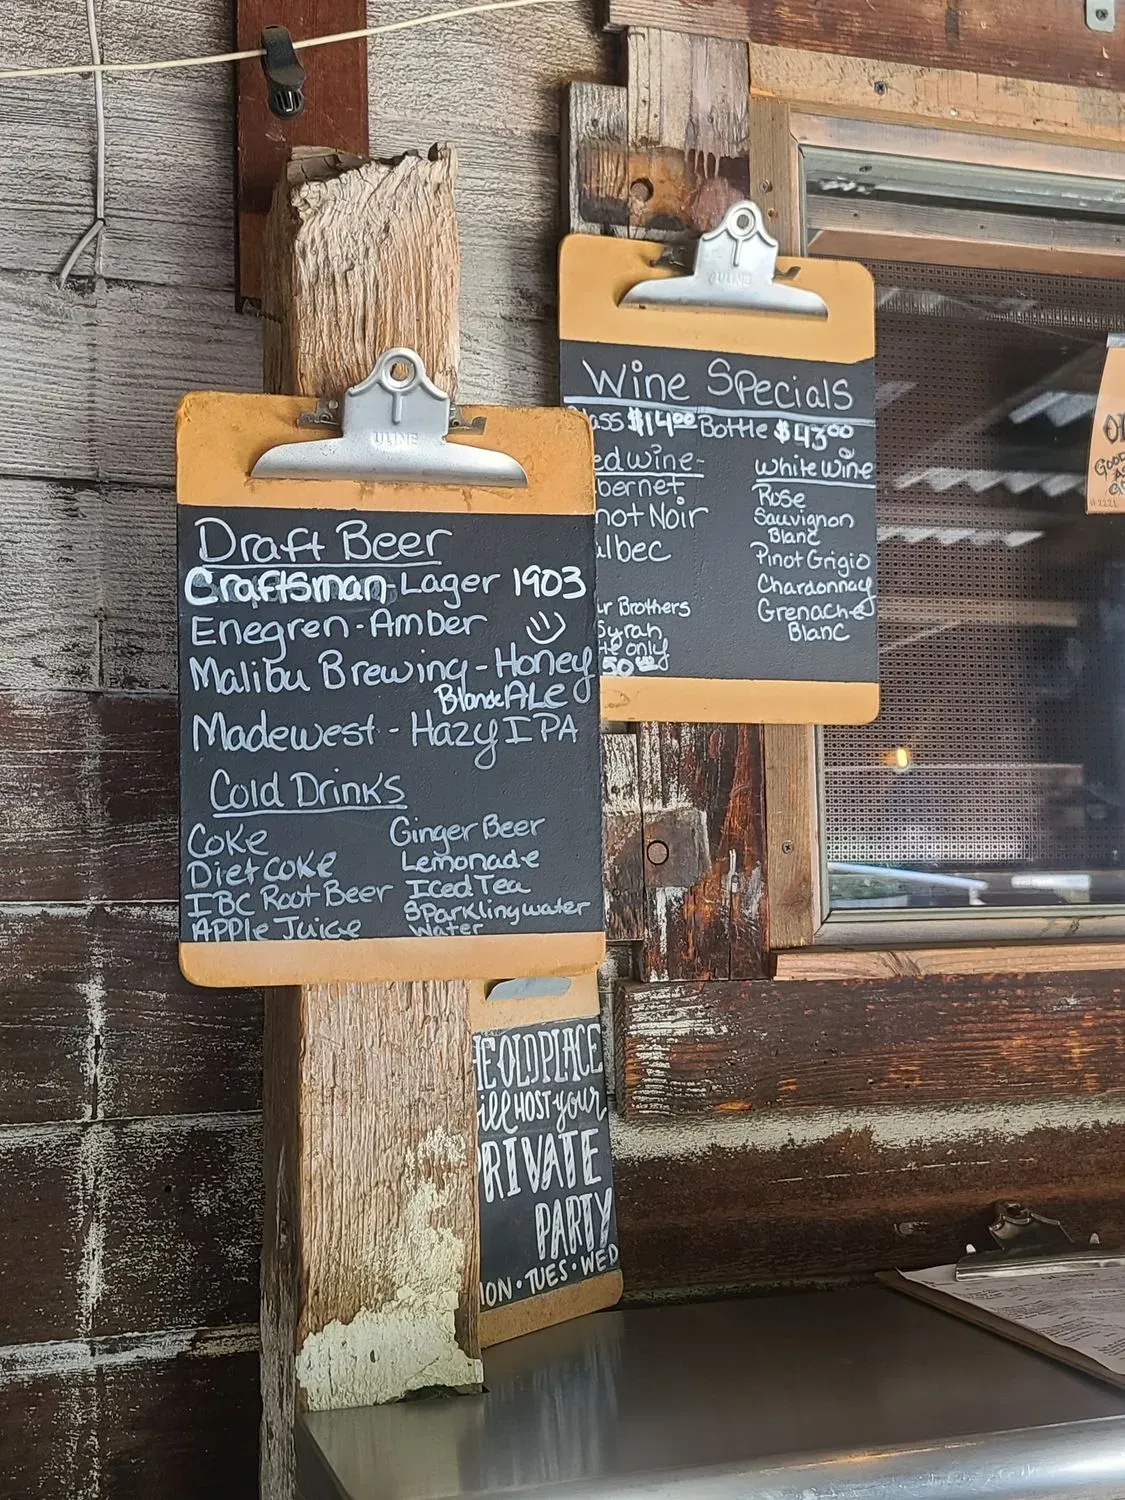 ULINE
Draft Beer
Craftsman-Lager 1903
Enegren-Amber
Malibu Brewing-Honey
Blonde ALe
Madewest-Hazy IPA
Cold Drinks
Coke
Diet coke
IBC Root Beer
APPle Juice
Ginger Beer
Lemonade
Iced Tea
SParkling water
Water
ULINE
Wine Specials
ass $14.00 Bottle $43.00
ed wine-
bernet
not Noir
albec
r Brothers
Syrah
only
50.00
White Wine
Rose
Sauvignon
Blanc
Pinot Grigio
Chardonnay
Grenache
Blanc
HE OLD PLACE
ill HOST your
PRIVATE
PARTY
ON • TUES • WED